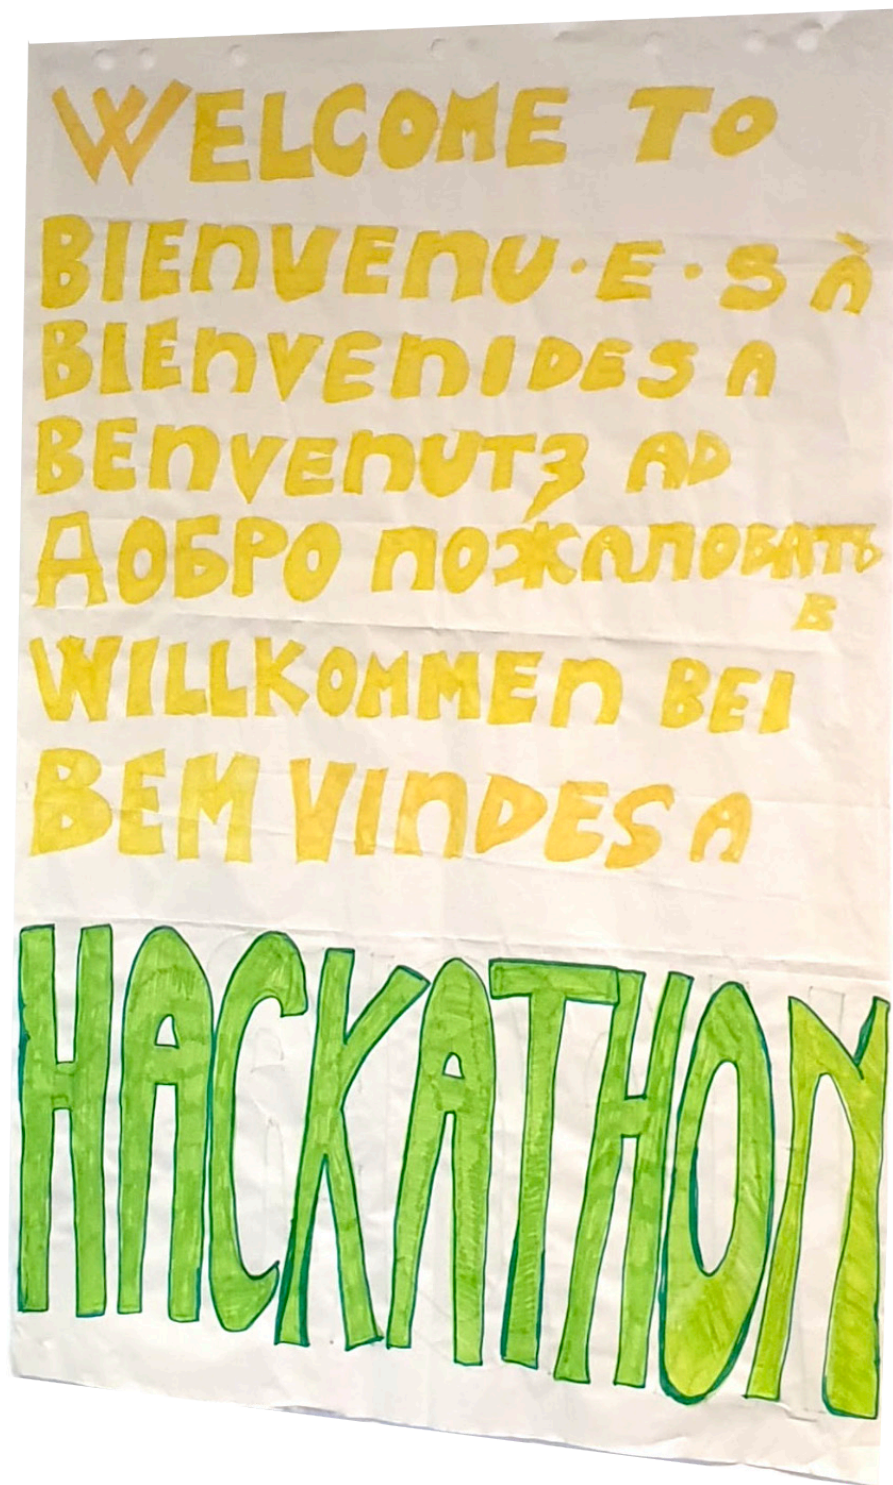 WELCOME TO
BIENVENU·E·S À
BIENVENIDES A
BENVENUTȜ AD
ДОБРО ПОЖАЛОВАТЬ
В
WILLKOMMEN BEI
BEM VINDES A
HACKATHON